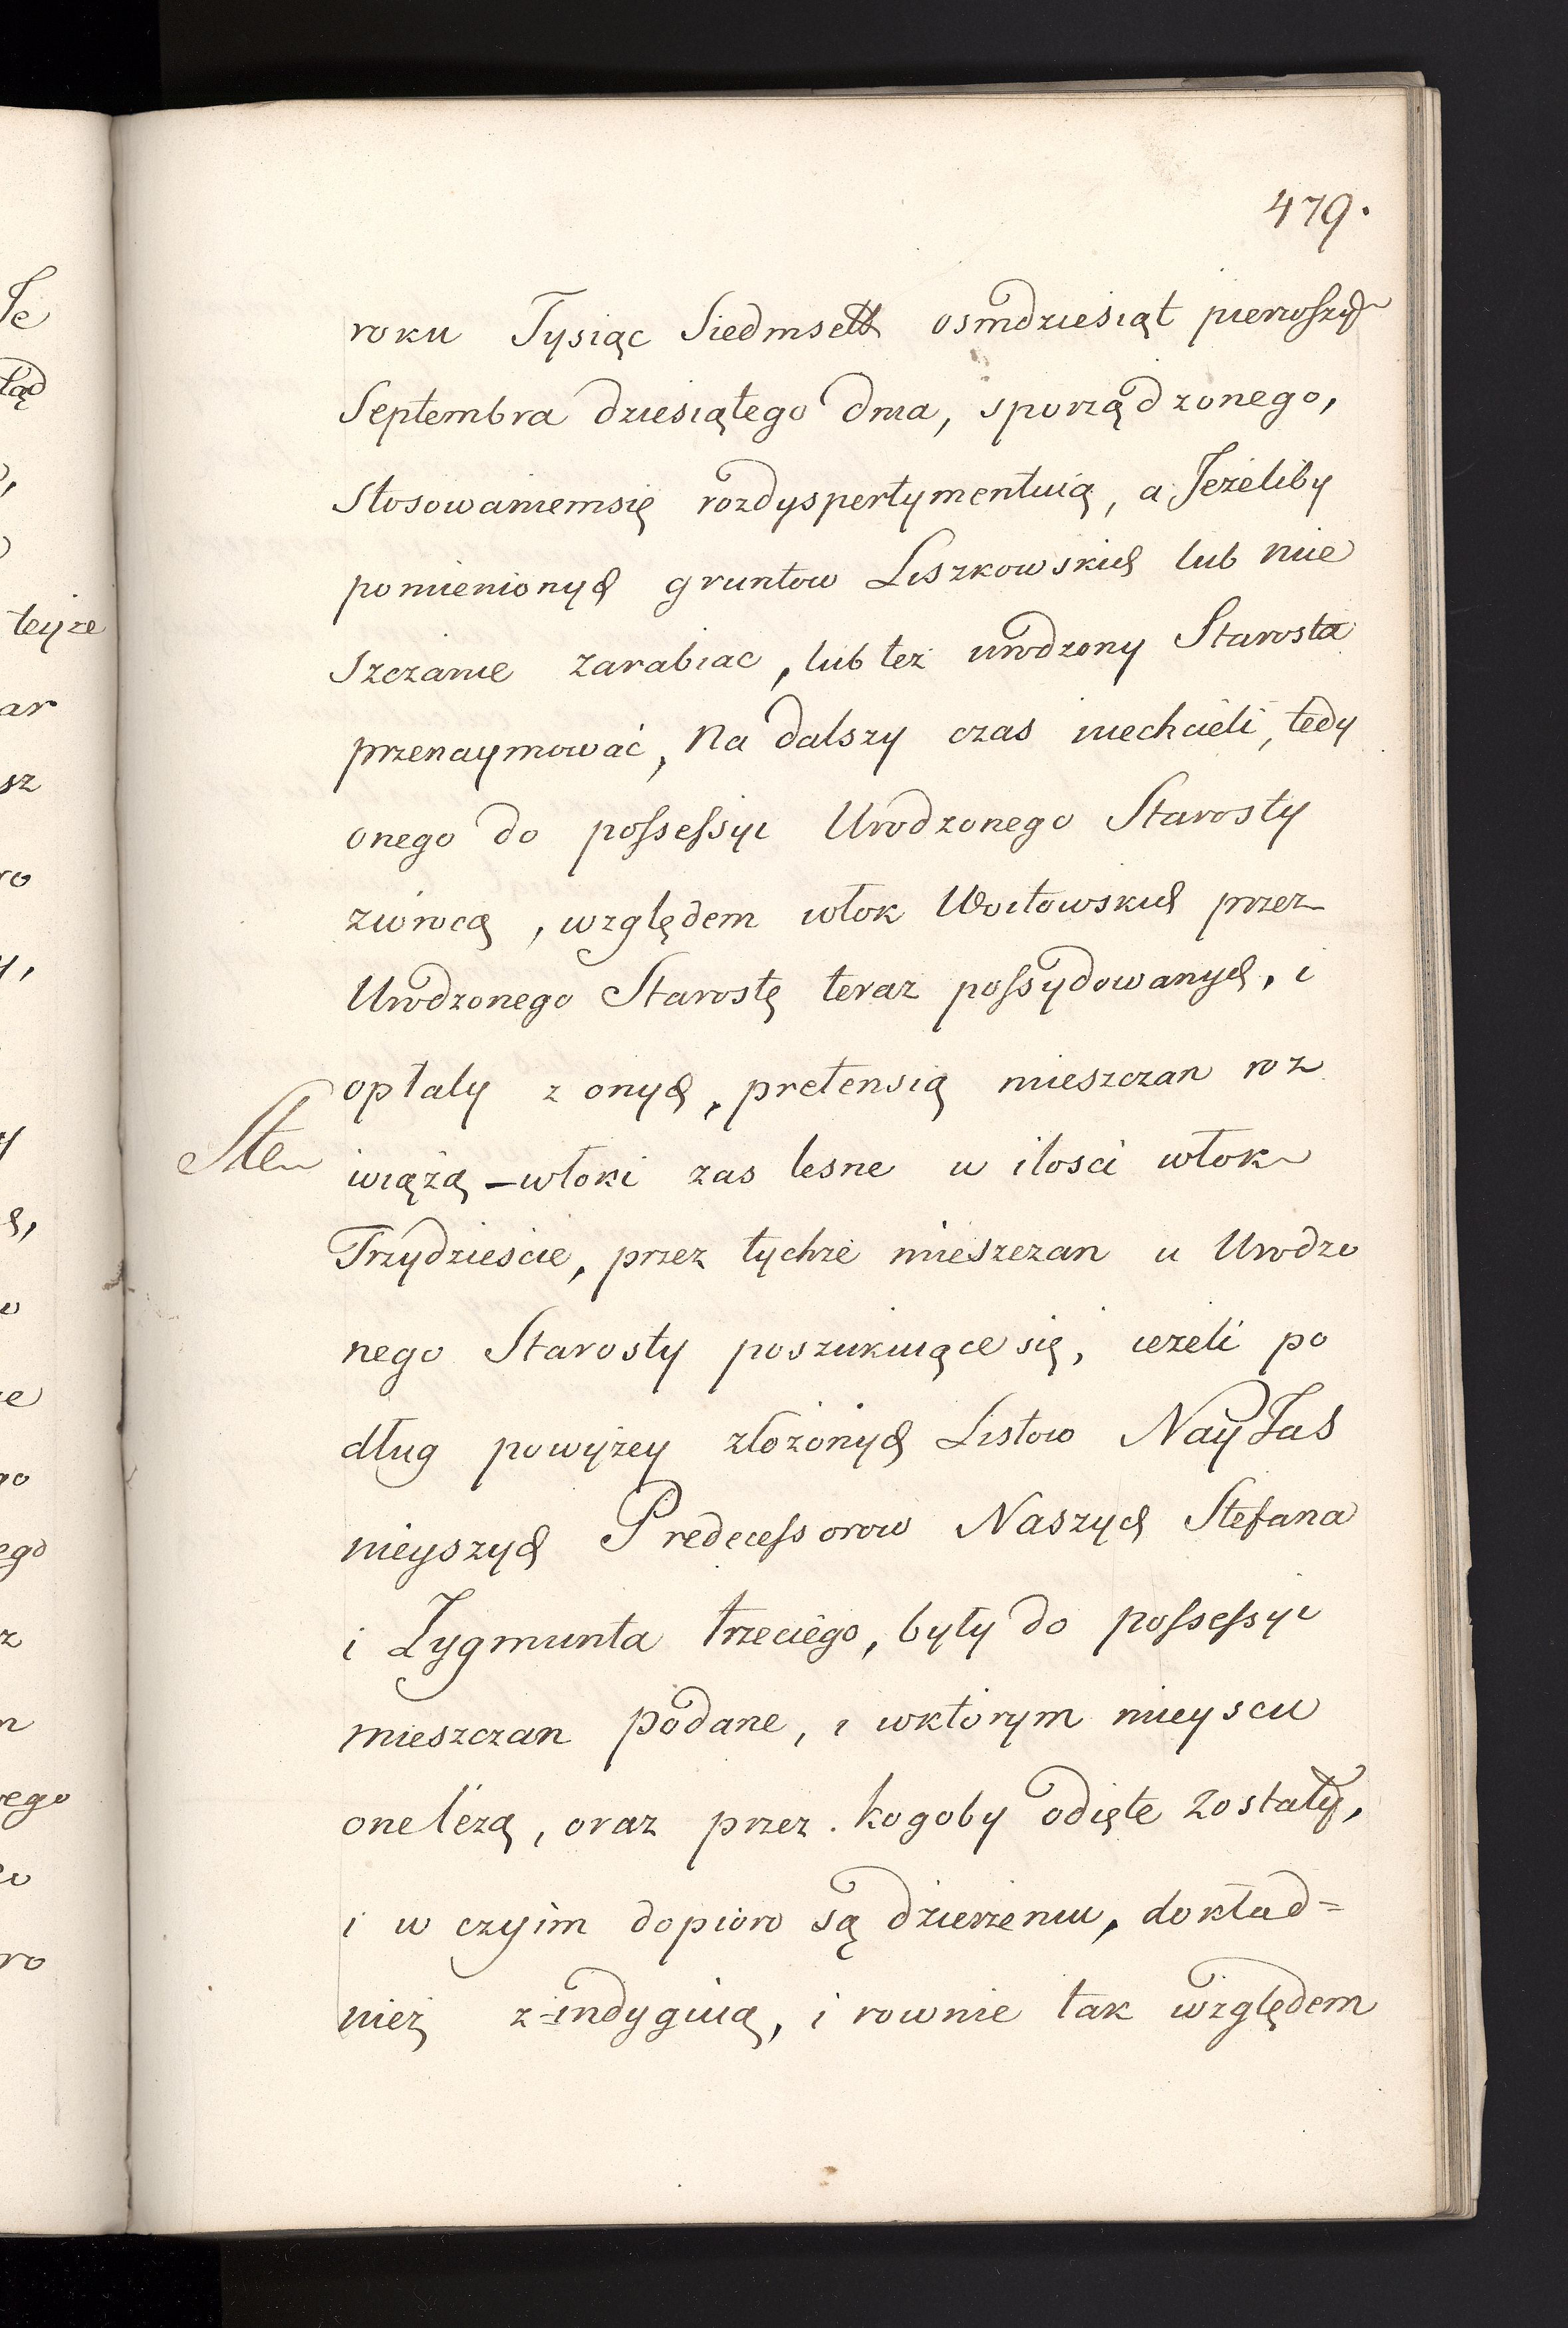 479.
roku Tysiąc Siedmsett osmdziesiąt pierwszych
Septembra dziesiątego dnia, sporządzonego,
stosowaniemsię rozdyspertymentuią, a Jeżeliby
pomienionych gruntow Liszkowskich lub mie
szczanie zarabiac, lub też urodzony Starosta
przenaymować, na dalszy czas niechcieli, tedy
onego do possessyi Urodzonego Starosty
zwrocą, względem włok Woitowskich przez
Urodzonego Starostę teraz possydowanych, i
opłaty z onych, pretensią mieszczan roz
wiążą – włoki zas lesne w ilosci włok
Trzydzieście, przez tychże mieszczan u Urodzo
nego Starosty poszukuiące się, ieżeli po
dług powyżey złożonych Listow NayJas
nieyszych Predecessorow Naszych Stefana
i Zygmunta trzeciego, były do possessyi
mieszczan podane, i wktorym mieyscu
one leżą, oraz przez kogoby odięte zostały,
i w czyim dopioro są dzierżeniu, dokład=
nież z=indyguią, i rownie tak względem